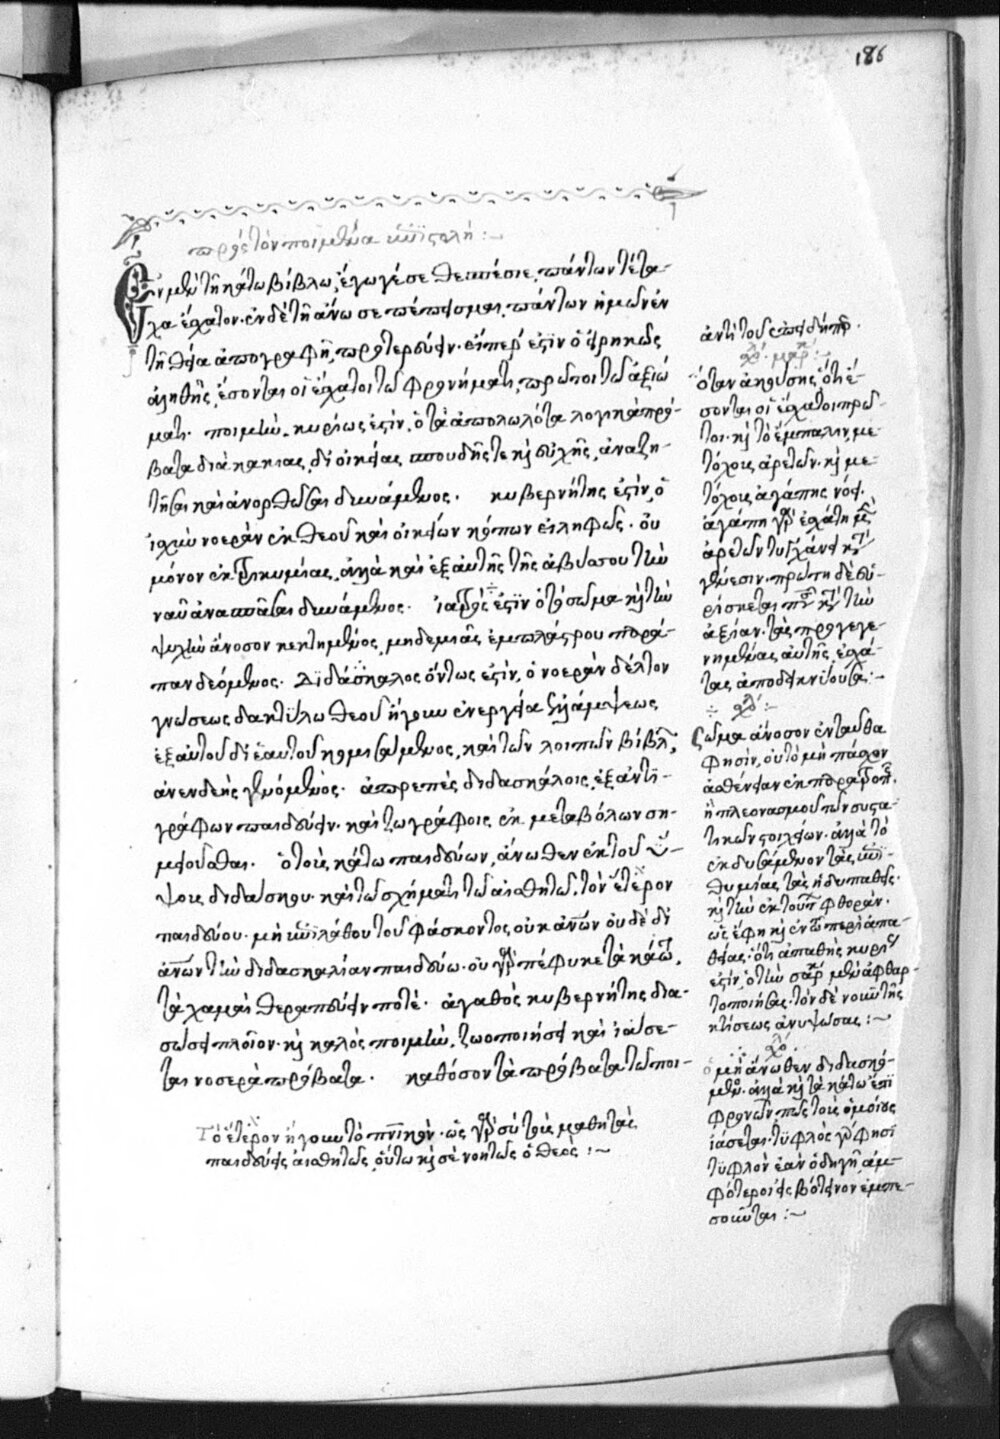 186
πρὸς τὸν ποιμένα ἐπιστολή :~
Ἐν μὲν τῇ κάτω βίβλῳ, ἔγωγέ σε θεσπέσιε, πάντων τέτα-
χα ἔσχατον· ἐν δὲ τῇ ἄνω σε πέπεισμαι, πάντων ἡμῶν ἐν
τῇ θείᾳ ἀπογραφῇ, πρωτερεύειν· εἴπερ ἐστὶν ὁ εἰρηκὼς
ἀληθής, ἔσονται οἱ ἔσχατοι τῷ φρονήματι, πρῶτοι τῷ ἀξιώ-
ματι· ποιμὴν κυρίως ἐστὶν, ὁ τὰ ἀπολωλότα λογικὰ πρό-
βατα διὰ κακίας, δι' οἰκείας σπουδῆς τε καὶ εὐχῆς, ἀναζη-
τῆσαι καὶ ἀνορθῶσαι δυνάμενος. κυβερνήτης ἐστὶν, ὁ
ἰσχὺν νοερὰν ἐκ Θεοῦ καὶ οἰκείων κόπων εἰληφώς· οὐ
μόνον ἐκ τρικυμίας, ἀλλὰ καὶ ἐξ αὐτῆς τῆς ἀβύσσου τὴν
ναῦν ἀνασπᾶσαι δυνάμενος. ἰατρός ἐστιν ὁ τὸ σῶμα καὶ τὴν
ψυχὴν ἄνοσον κεκτημένος, μηδεμιᾶς ἐμπλάστρου παρά-
παν δεόμενος. Διδάσκαλος ὄντως ἐστὶν, ὁ νοερὰν δέλτον
γνώσεως δακτύλῳ Θεοῦ ἤγουν ἐνεργείᾳ ἐλλάμψεως
ἐξ αὐτοῦ δι' ἑαυτοῦ κομισάμενος, καὶ τῶν λοιπῶν βίβλων
ἀνενδεὴς γενόμενος. ἀπρεπὲς διδασκάλοις, ἐξ ἀντι-
γράφων παιδεύειν· καὶ ζωγράφοις ἐκ μεταβόλων ση-
μειοῦσθαι. ὁ τοὺς κάτω παιδεύων, ἄνωθεν ἐκ τοῦ ὕ-
ψους διδάσκου· καὶ τῷ σχήματι τῷ αἰσθητῷ, τὸν ἕτερον
παιδεύου. μὴ ἐπιλάθου τοῦ φάσκοντος, οὐκ ἀπ' ἀνθρώπων οὐδὲ δι'
ἀνθρώπων τὴν διδασκαλίαν παιδεύω. οὐ γὰρ πέφυκε τὰ κάτω,
τὰ χαμαὶ θεραπεύειν ποτέ. ἀγαθὸς κυβερνήτης δια-
σώσει πλοῖον· καὶ καλὸς ποιμὴν, ζωοποιήσει καὶ ἰάσε-
ται νοσερὰ πρόβατα. καθόσον τὰ πρόβατα τῷ ποι-
Τὸ ἕτερον ἤγουν τὸ πνευματικόν· ὡς γὰρ σὺ τοὺς μαθητὰς
παιδεύεις αἰσθητῶς, οὕτω καὶ σὲ νοητῶς ὁ Θεός :~
ἀντὶ τοῦ
ὅταν ἀκούσῃς, ὅτι ἔ-
σονται οἱ ἔσχατοι πρῶ-
τοι· καὶ τὸ ἔμπαλιν, με-
τόχους ἀρετῶν· καὶ με-
τόχους ἀγάπης νόει·
ἀγάπη γὰρ ἐσχάτη μὲν
ἀρετῶν τυγχάνει κατὰ
γένεσιν· πρώτη δὲ εὑ-
ρίσκεται πασῶν κατὰ τὴν
ἀξίαν. τὰς προγεγε-
νημένας αὐτῆς, ἐσχά-
τας ἀποδεικνύουσα :~
σχόλιον :~
Σῶμα ἄνοσον ἐνταῦθα
φησίν, οὐ τὸ μὴ πάσχον
ἀσθένειαν ἐκ παρατροπῆς,
ἢ πλεονασμοῦ τῶν συστα-
τικῶν στοιχείων· ἀλλὰ τὸ
ἐκδυσάμενον τὰς ἐπι-
θυμίας τὰς ἡδυπαθεῖς·
καὶ τὴν ἐκ τούτων φθοράν·
ὡς ἔφη καὶ ἐν τῷ περὶ ἀπα-
θείας· ὅτι ἀπαθὴς κυρίως
ἐστὶν, ὁ τὴν σάρκα μὲν ἀφθαρ-
τοποιήσας· τὸν δὲ νοῦν τῆς
κτίσεως ἀνυψώσας :~
σχόλιον
ὁ μὴ ἄνωθεν διδασκό-
μενος· ἀλλὰ καὶ τὰ κάτω ἔτι
φρονῶν, πῶς τοὺς ὁμοίους
ἰάσεται· τυφλὸς γάρ φησι
τυφλὸν ἐὰν ὁδηγῇ, ἀμ-
φότεροι εἰς βόθυνον ἐμπε-
σοῦνται :~